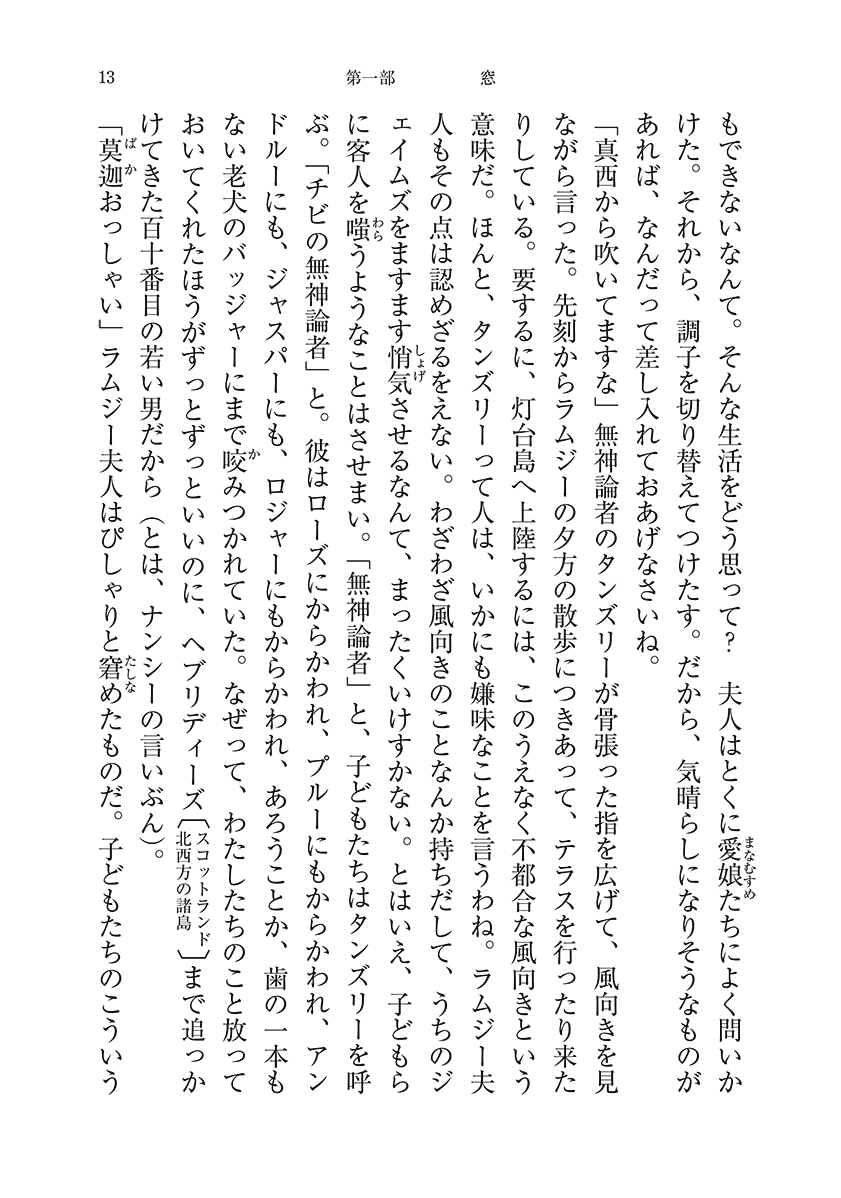 13　第一部　　窓
もできないなんて。そんな生活をどう思って？　夫人はとくに愛娘たちによく問いか
まなむすめ
けた。それから、調子を切り替えてつけたす。だから、気晴らしになりそうなものが
あれば、なんだって差し入れておあげなさいね。
「真西から吹いてますな」無神論者のタンズリーが骨張った指を広げて、風向きを見
ながら言った。先刻からラムジーの夕方の散歩につきあって、テラスを行ったり来た
りしている。要するに、灯台島へ上陸するには、このうえなく不都合な風向きという
意味だ。ほんと、タンズリーって人は、いかにも嫌味なことを言うわね。ラムジー夫
人もその点は認めざるをえない。わざわざ風向きのことなんか持ちだして、うちのジ
ェイムズをますます悄気させるなんて、まったくいけすかない。とはいえ、子どもら
しょげ
に客人を嗤うようなことはさせまい。「無神論者」と、子どもたちはタンズリーを呼
わら
ぶ。「チビの無神論者」と。彼はローズにからかわれ、プルーにもからかわれ、アン
ドルーにも、ジャスパーにも、ロジャーにもからかわれ、あろうことか、歯の一本も
ない老犬のバッジャーにまで咬みつかれていた。なぜって、わたしたちのこと放って
か
おいてくれたほうがずっとずっといいのに、ヘブリディーズ〔スコットランド北西方の諸島〕まで追っか
けてきた百十番目の若い男だから（とは、ナンシーの言いぶん）。
「莫迦おっしゃい」ラムジー夫人はぴしゃりと窘めたものだ。子どもたちのこういう
ばか
たしな